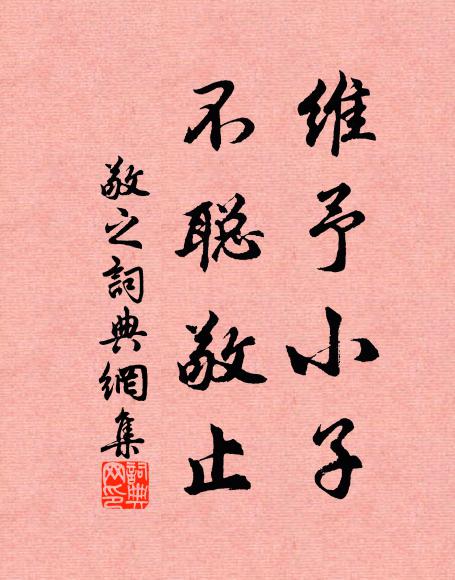 維予小子
不聪敬止
敬之詞典網集
詞典网印